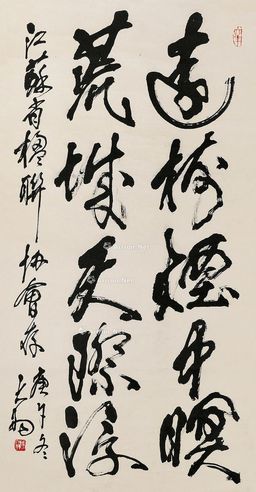 遠樹煙中暝
荒城天際浮
江蘇省楹聯協會存庚午冬
大羽